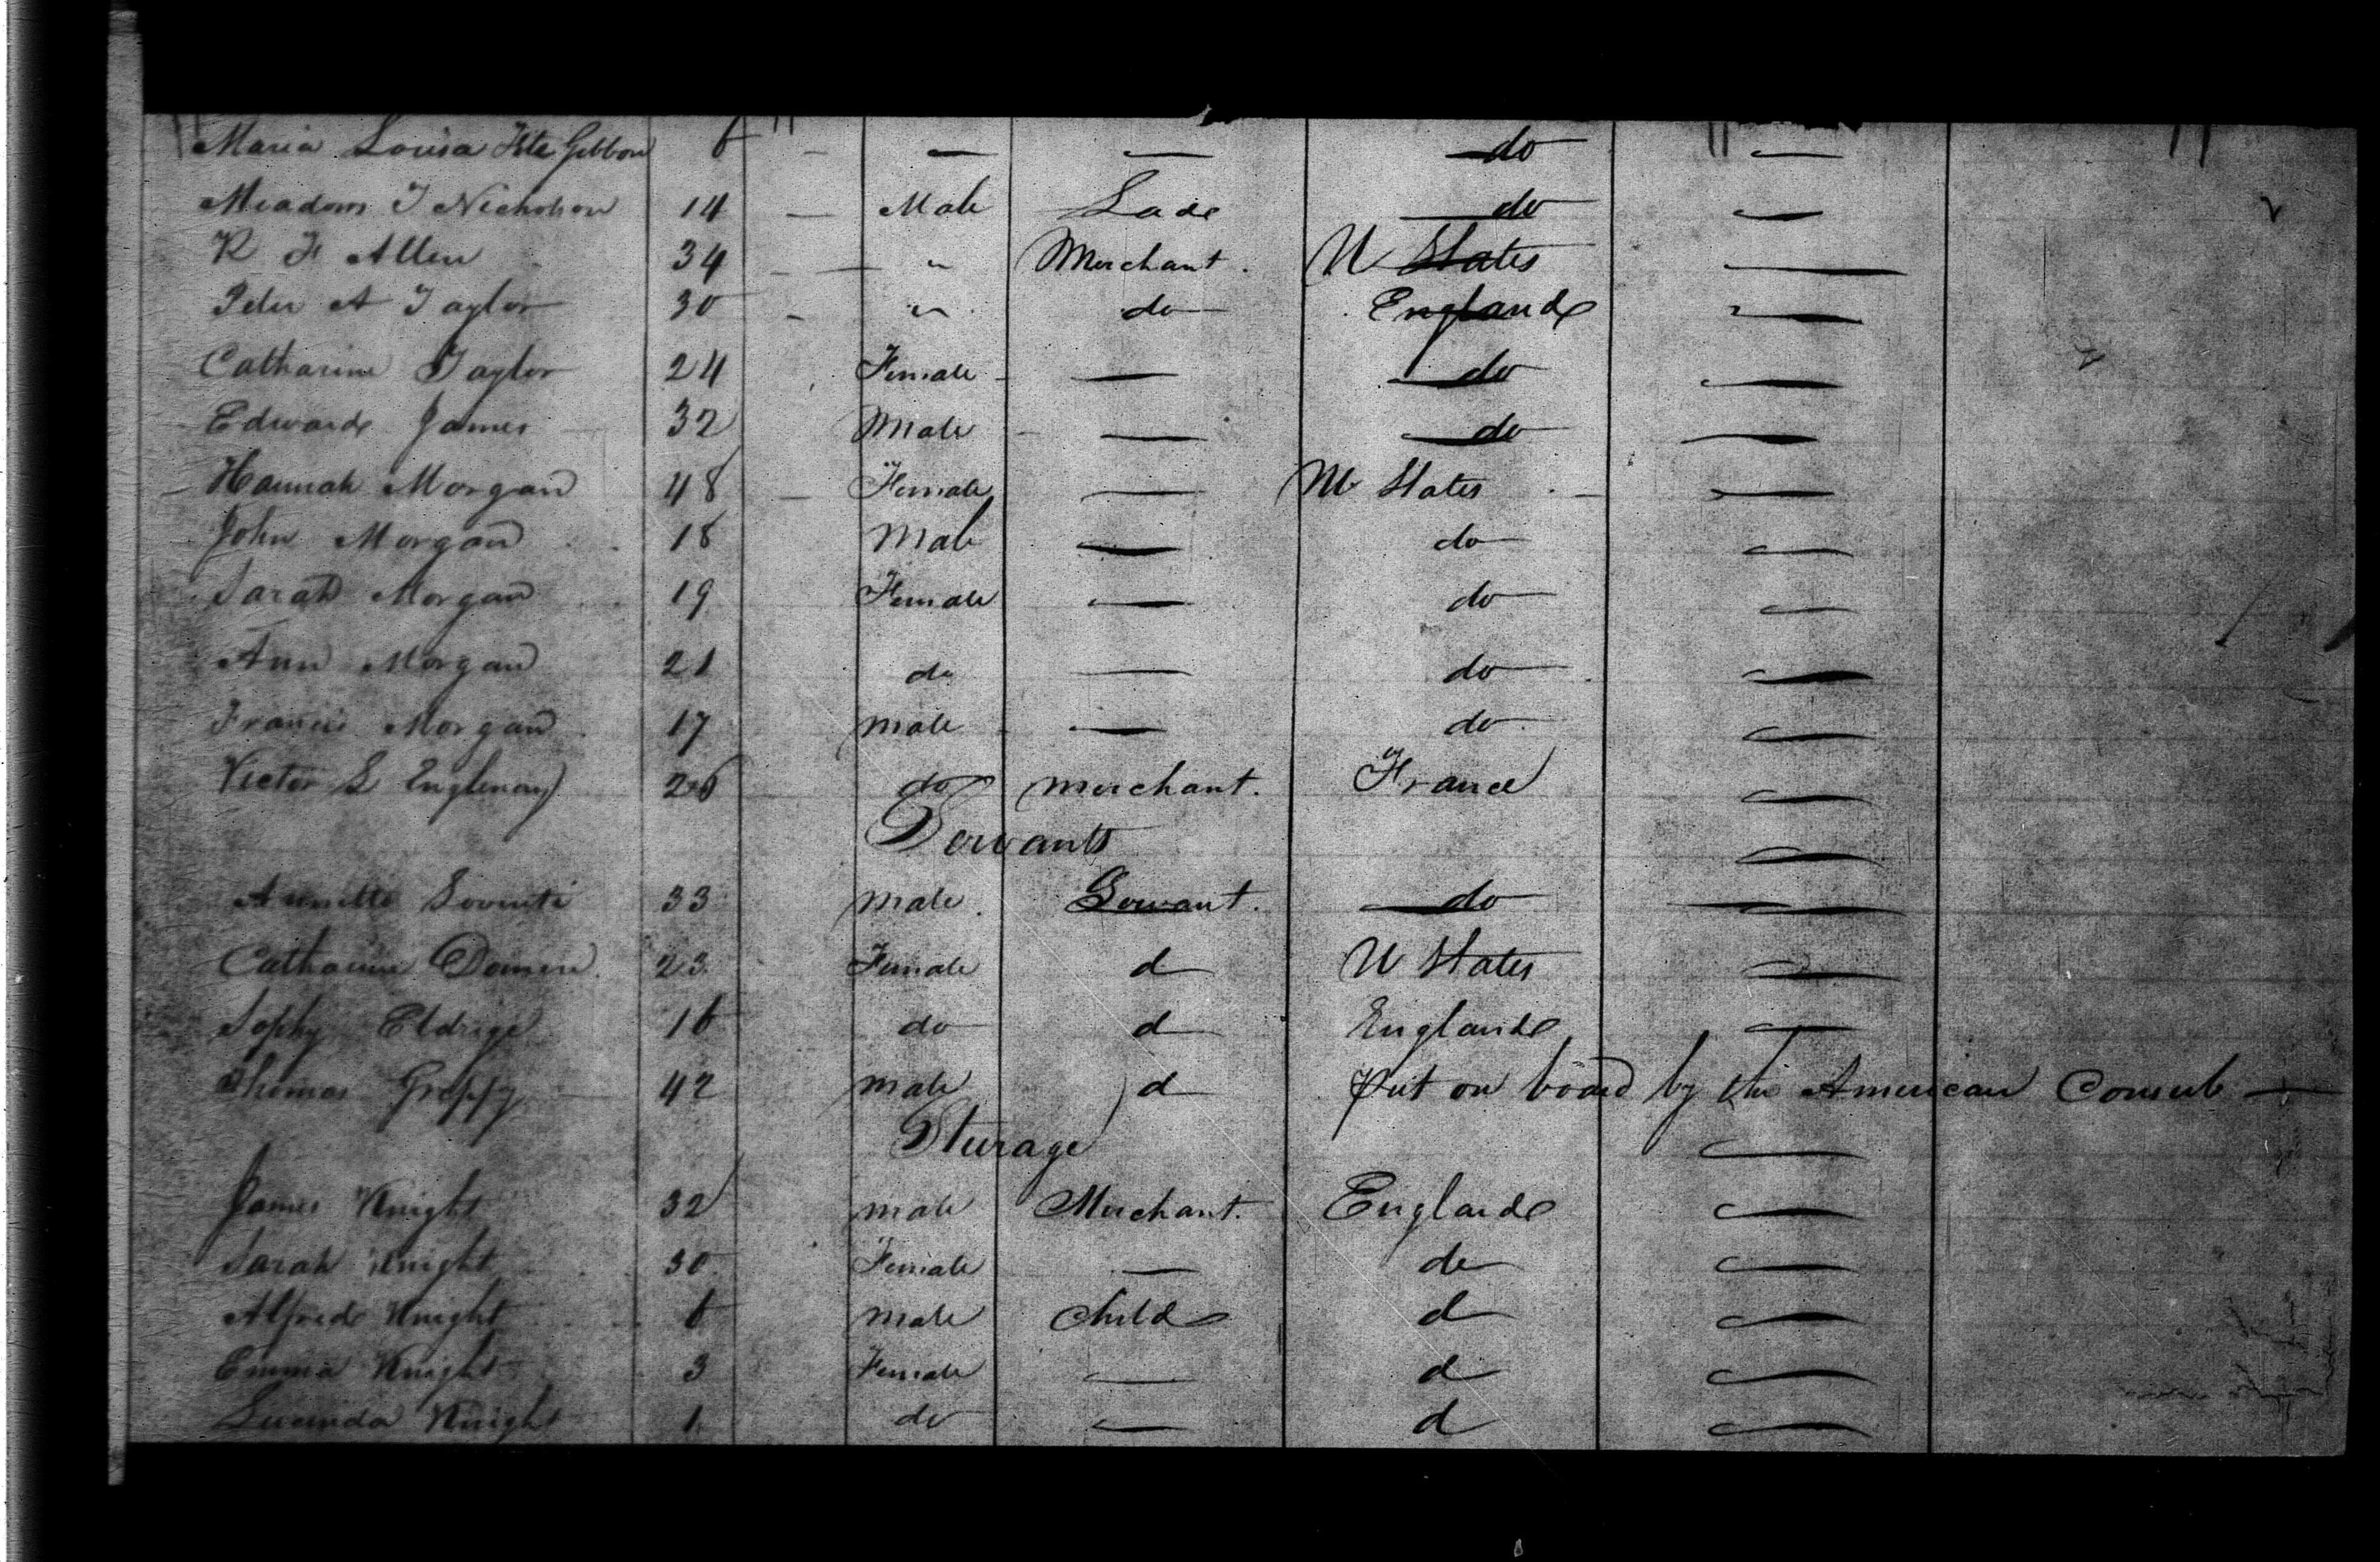 Maria Louisa Fitz Gibbon 6 — — — do —
Meadows T Nicholson 14 — Male Lade do —
R F Allen 34 — " Merchant. U States —
Peter A Taylor 30 — " do England —
Catharine Taylor 24 Female — do —
Edward James 32 Male — do —
Hannah Morgan 48 — Female — U States —
John Morgan 18 Male — do —
Sarah Morgan 19 Female — do —
Ann Morgan 21 do — do —
Francis Morgan 17 male — do —
Victor S 26 do merchant. France —
Servants —
33 male. Servant. do —
Catharine 23 Female d U States —
Sophy Eldrige 16 do d England —
Thomas 42 male d Put on board by the American Consul —
Sturage —
James Knight 32 male Merchant. England —
Sarah Knight 30 Female — do —
Alfred Knight 6 male Child d —
Emma Knight 3 Female — d —
Lucinda Knight 1 do — d —